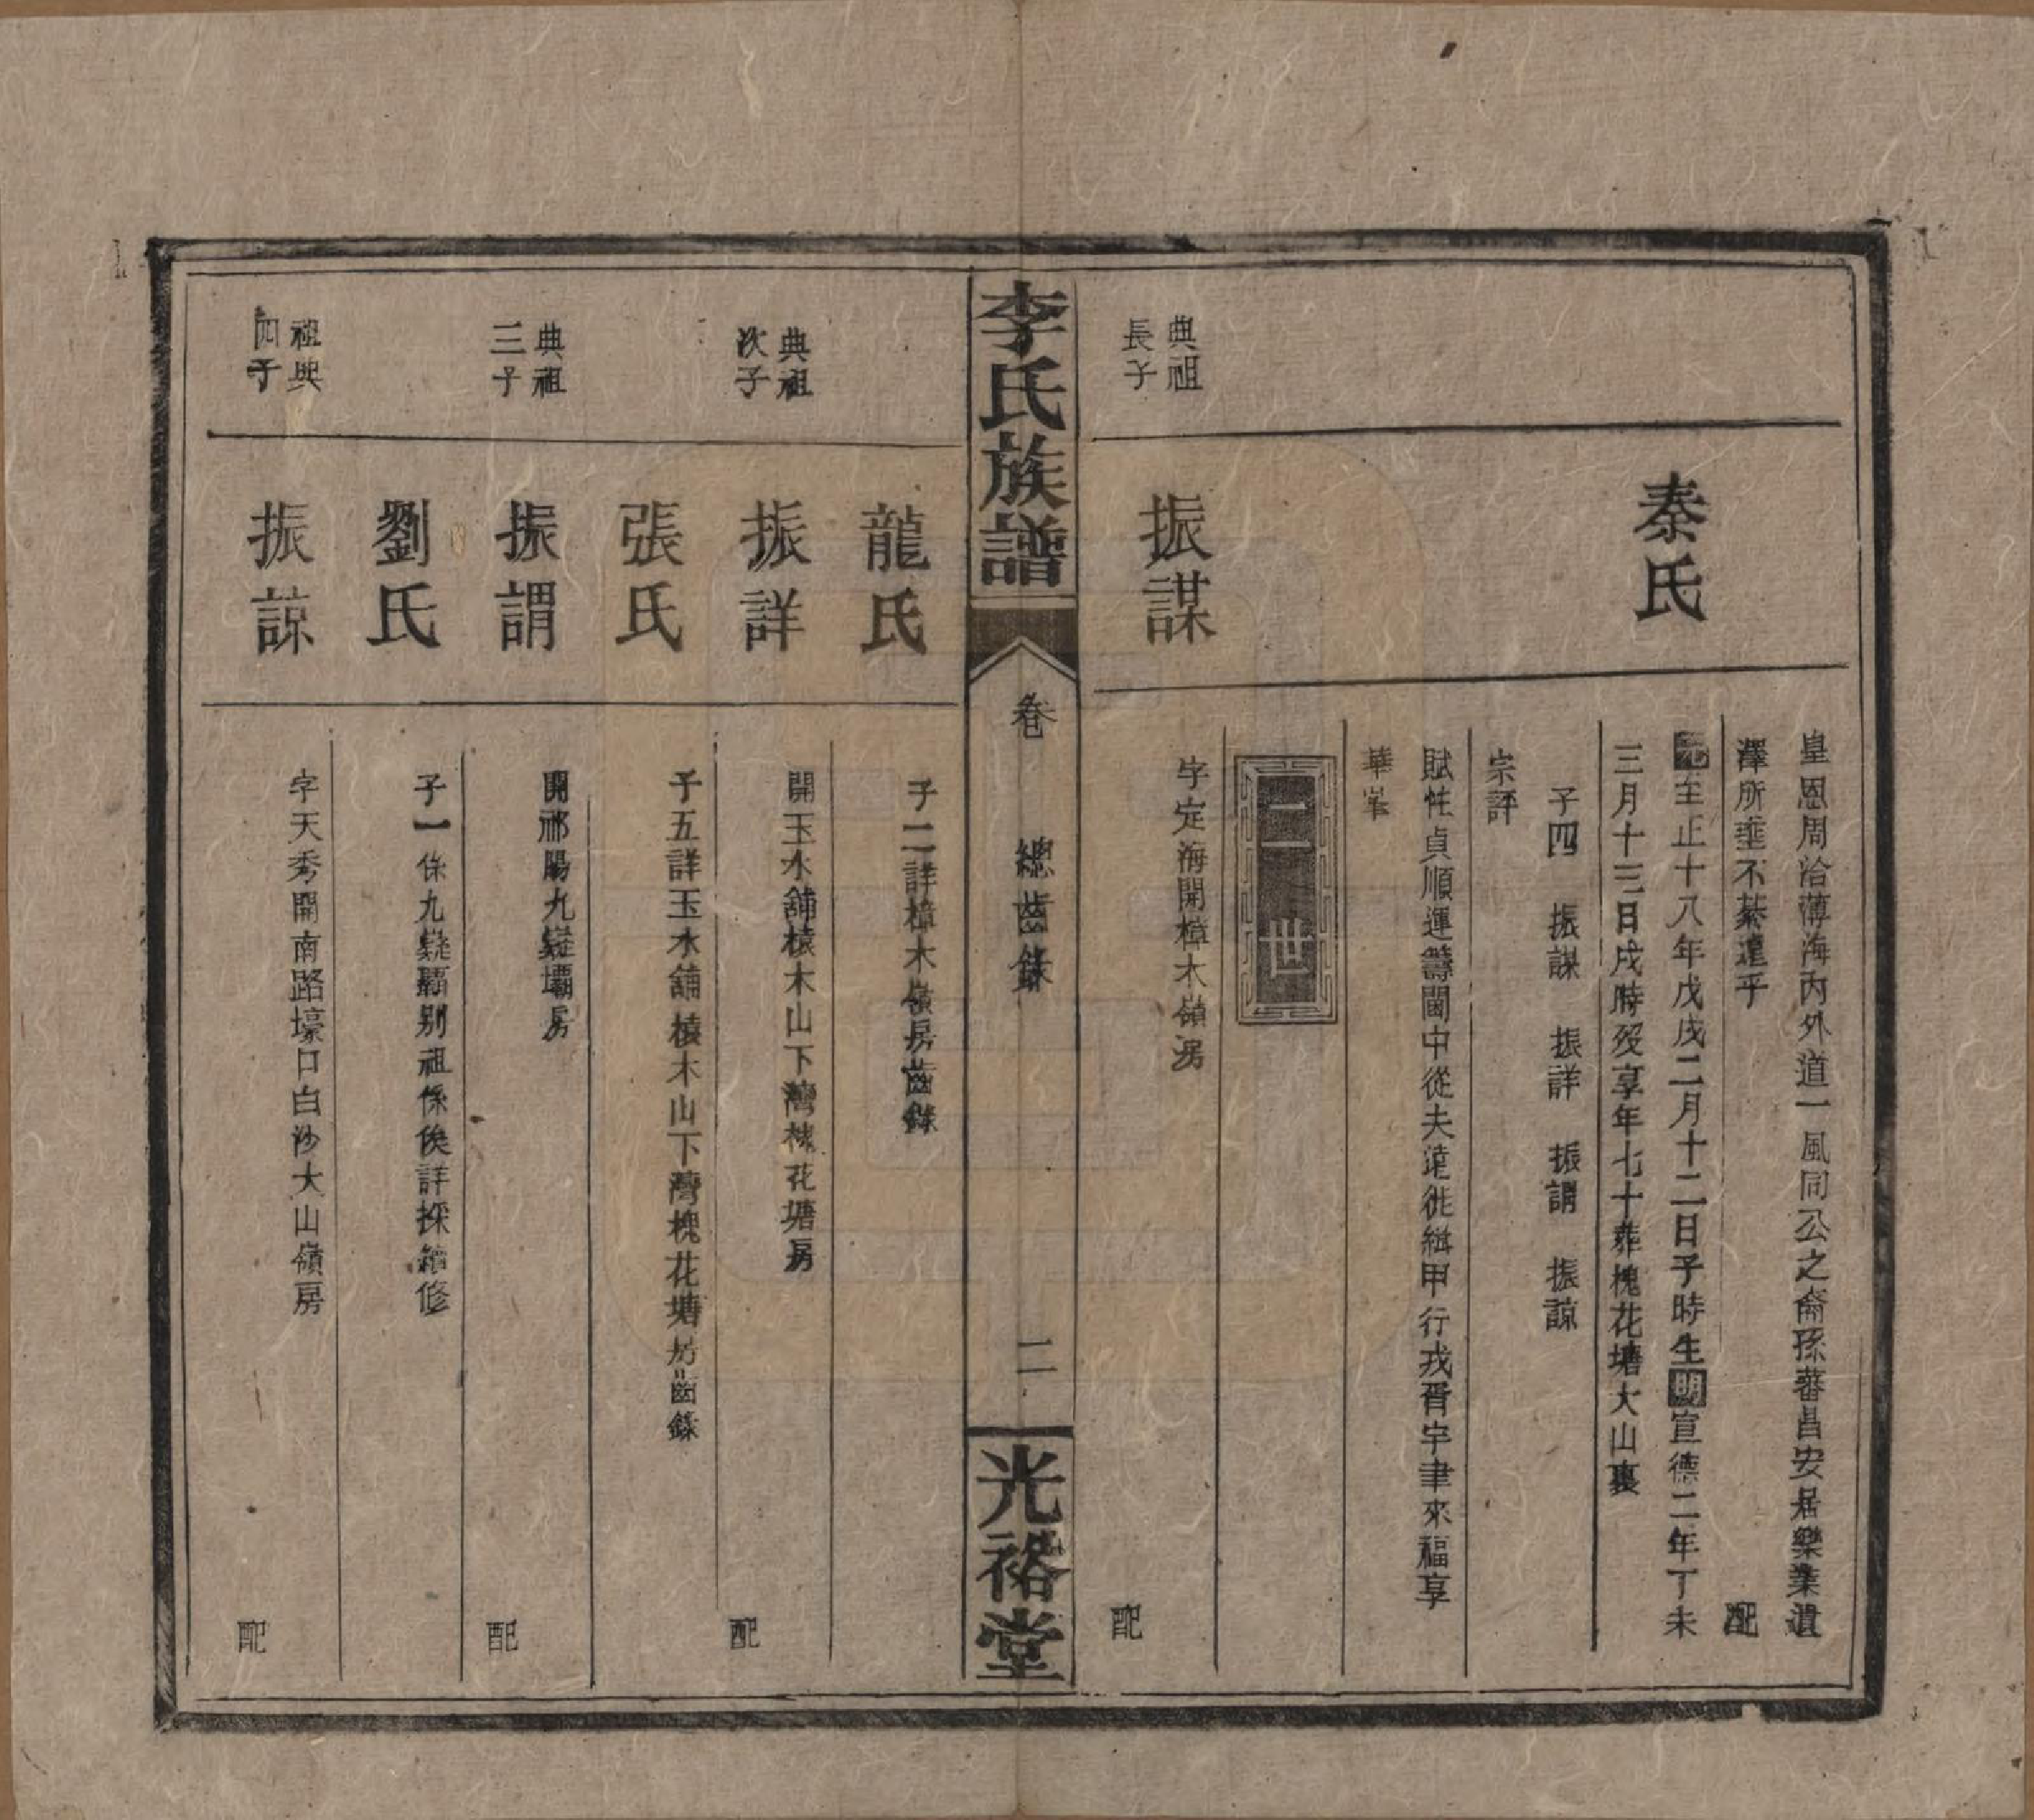 皇恩周洽薄海內外道一風同公之裔孫蕃昌安居樂業遺
澤所垂不綦遠乎
配
秦氏
元至正十八年戊戌二月十二日子時生明宣德二年丁未
三月十三日戌時歿享年七十葬槐花塘大山裏
子四 振謀 振詳 振謂 振諒
宗評
賦性貞順運籌閫中從夫遠徙緝甲行戎胥宇聿來福享
華
二世
典祖
長子
振謀
字定海開樟木嶺房
配
李氏族譜
卷
總齒錄
二
光裕堂
龍氏
子二詳樟木嶺房齒錄
典祖
次子
振詳
開玉水舖榬木山下灣槐花塘房
配
張氏
子五詳玉水舖榬木山下灣槐花塘房齒錄
典祖
三子
振謂
開祁陽九嶷壩房
配
劉氏
子一係九嶷壩別祖係俟詳採續修
祖典
四子
振諒
字天秀開南路壕口白沙大山嶺房
配